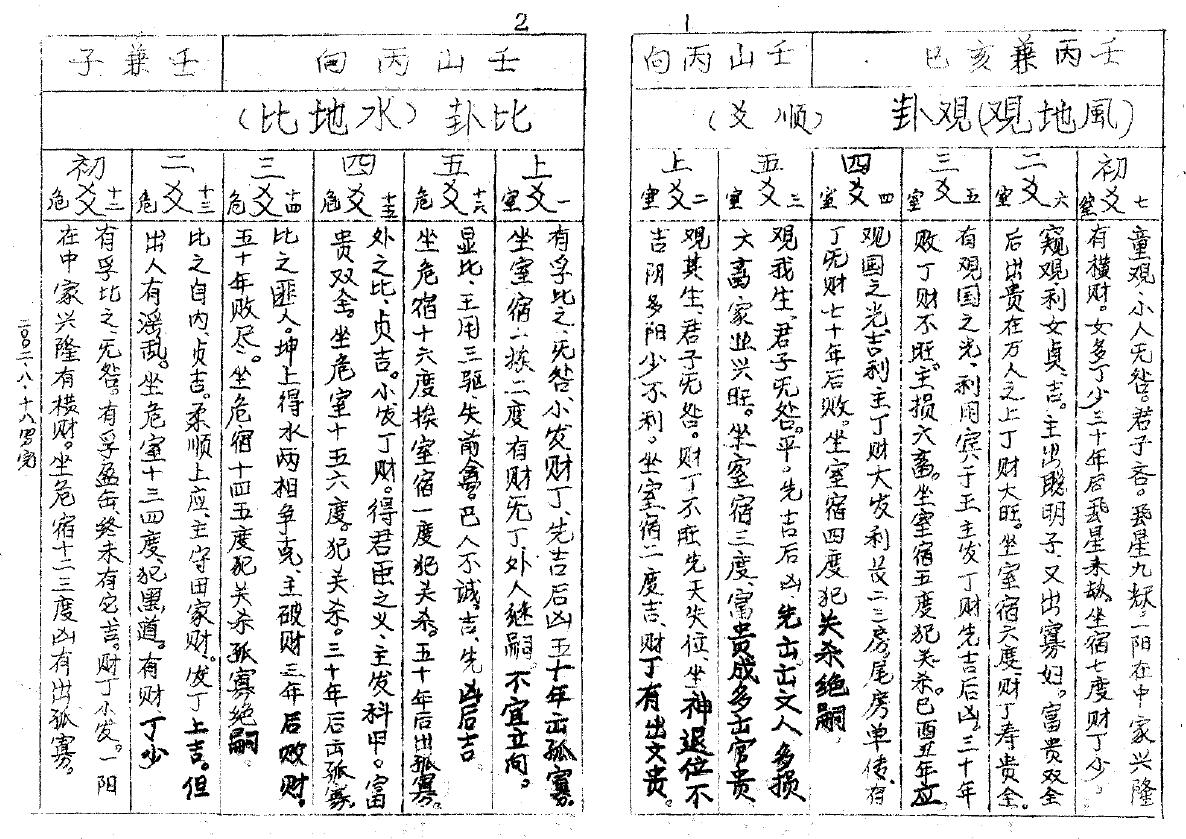 1
壬丙兼亥巳
壬山丙向
(風地观)观卦
(顺爻)
初爻
七
室
童观、小人无咎。君子吝。
九
一阳在中家兴隆
有横财。女多丁少三十年后
星来劫。坐宿七度财丁少。
二爻
六
室
窥观利女贞、吉。主出聪明子又出寡妇。富贵双全
后出贵在万人之上丁财大旺。坐室宿六度、财丁寿贵全。
三爻
五
室
有观国之光、利用宾于王主发丁财先吉后凶。三十年
败丁财不旺。主损六畜。坐室宿五度犯关杀。巳酉丑年应
四爻
四
室
观国之光、吉利主丁财大发利
二三房。尾房单传、有
丁无财七十年后败。坐室宿四度犯关杀绝嗣
五爻
三
室
观我生、君子无咎。平。先吉后凶、先出出文人多损
六畜家业兴旺。坐室宿三度、富贵成多出官贵
上爻
二
室
观其生、君子无咎。财丁不旺先天失位、坐神退位不
吉阴多阳少不利。坐室宿二度吉、财丁有出文贵。
2
壬山丙向
壬兼子
比卦(水地比)
上爻
一
室
有孚比之、无咎、小发财丁、先吉后凶五十年出孤寡。
坐室宿一挨二度有财无丁外人继嗣不宜立向。
五爻
十六
危
显比、王用三驱、失前禽。邑人不诫。吉、先凶后吉
坐危宿十六度挨室宿一度犯关杀。五十年后出孤寡。
四爻
十五
危
外之比、贞吉。小发丁财。得君臣之义、主发科甲。富
贵双全。坐危室十五六度。犯关杀。三十年后出孤寡。
三爻
十四
危
比之匪人。坤上得水两相争克、主破财三年后败财。
五十年败尽。坐危宿十四五度犯关杀孤寡绝嗣
二爻
十三
危
比之自内、贞吉。柔顺上应、主守田家财、发丁上吉。但
出人有淫乱。坐危室十三四度、犯黑道。有财丁少
初爻
十二
危
有孚比之、无咎。有孚盈缶、终来有它吉。财丁小发。一阳
在中家兴隆有横财。坐危宿十二三度凶有出孤寡。
二00二、八、十八
完